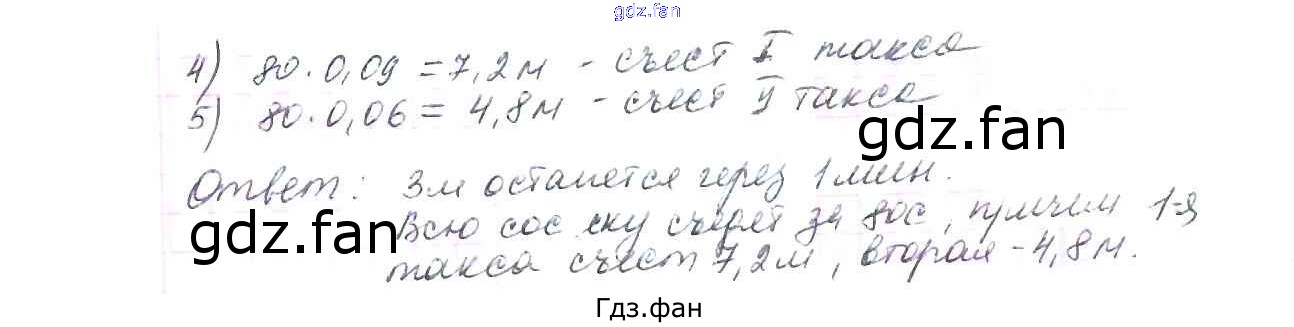 gdz.fan
4) 80·0,09 = 7,2м - съест I такса
5) 80·0,06 = 4,8м - съест II такса
gdz.fan
Ответ: 3м останется через 1 мин.
gdz.fan
Всю сосиску съедят за 80с, причем 1-я
такса съест 7,2м, вторая - 4,8м.
Гдз.фан